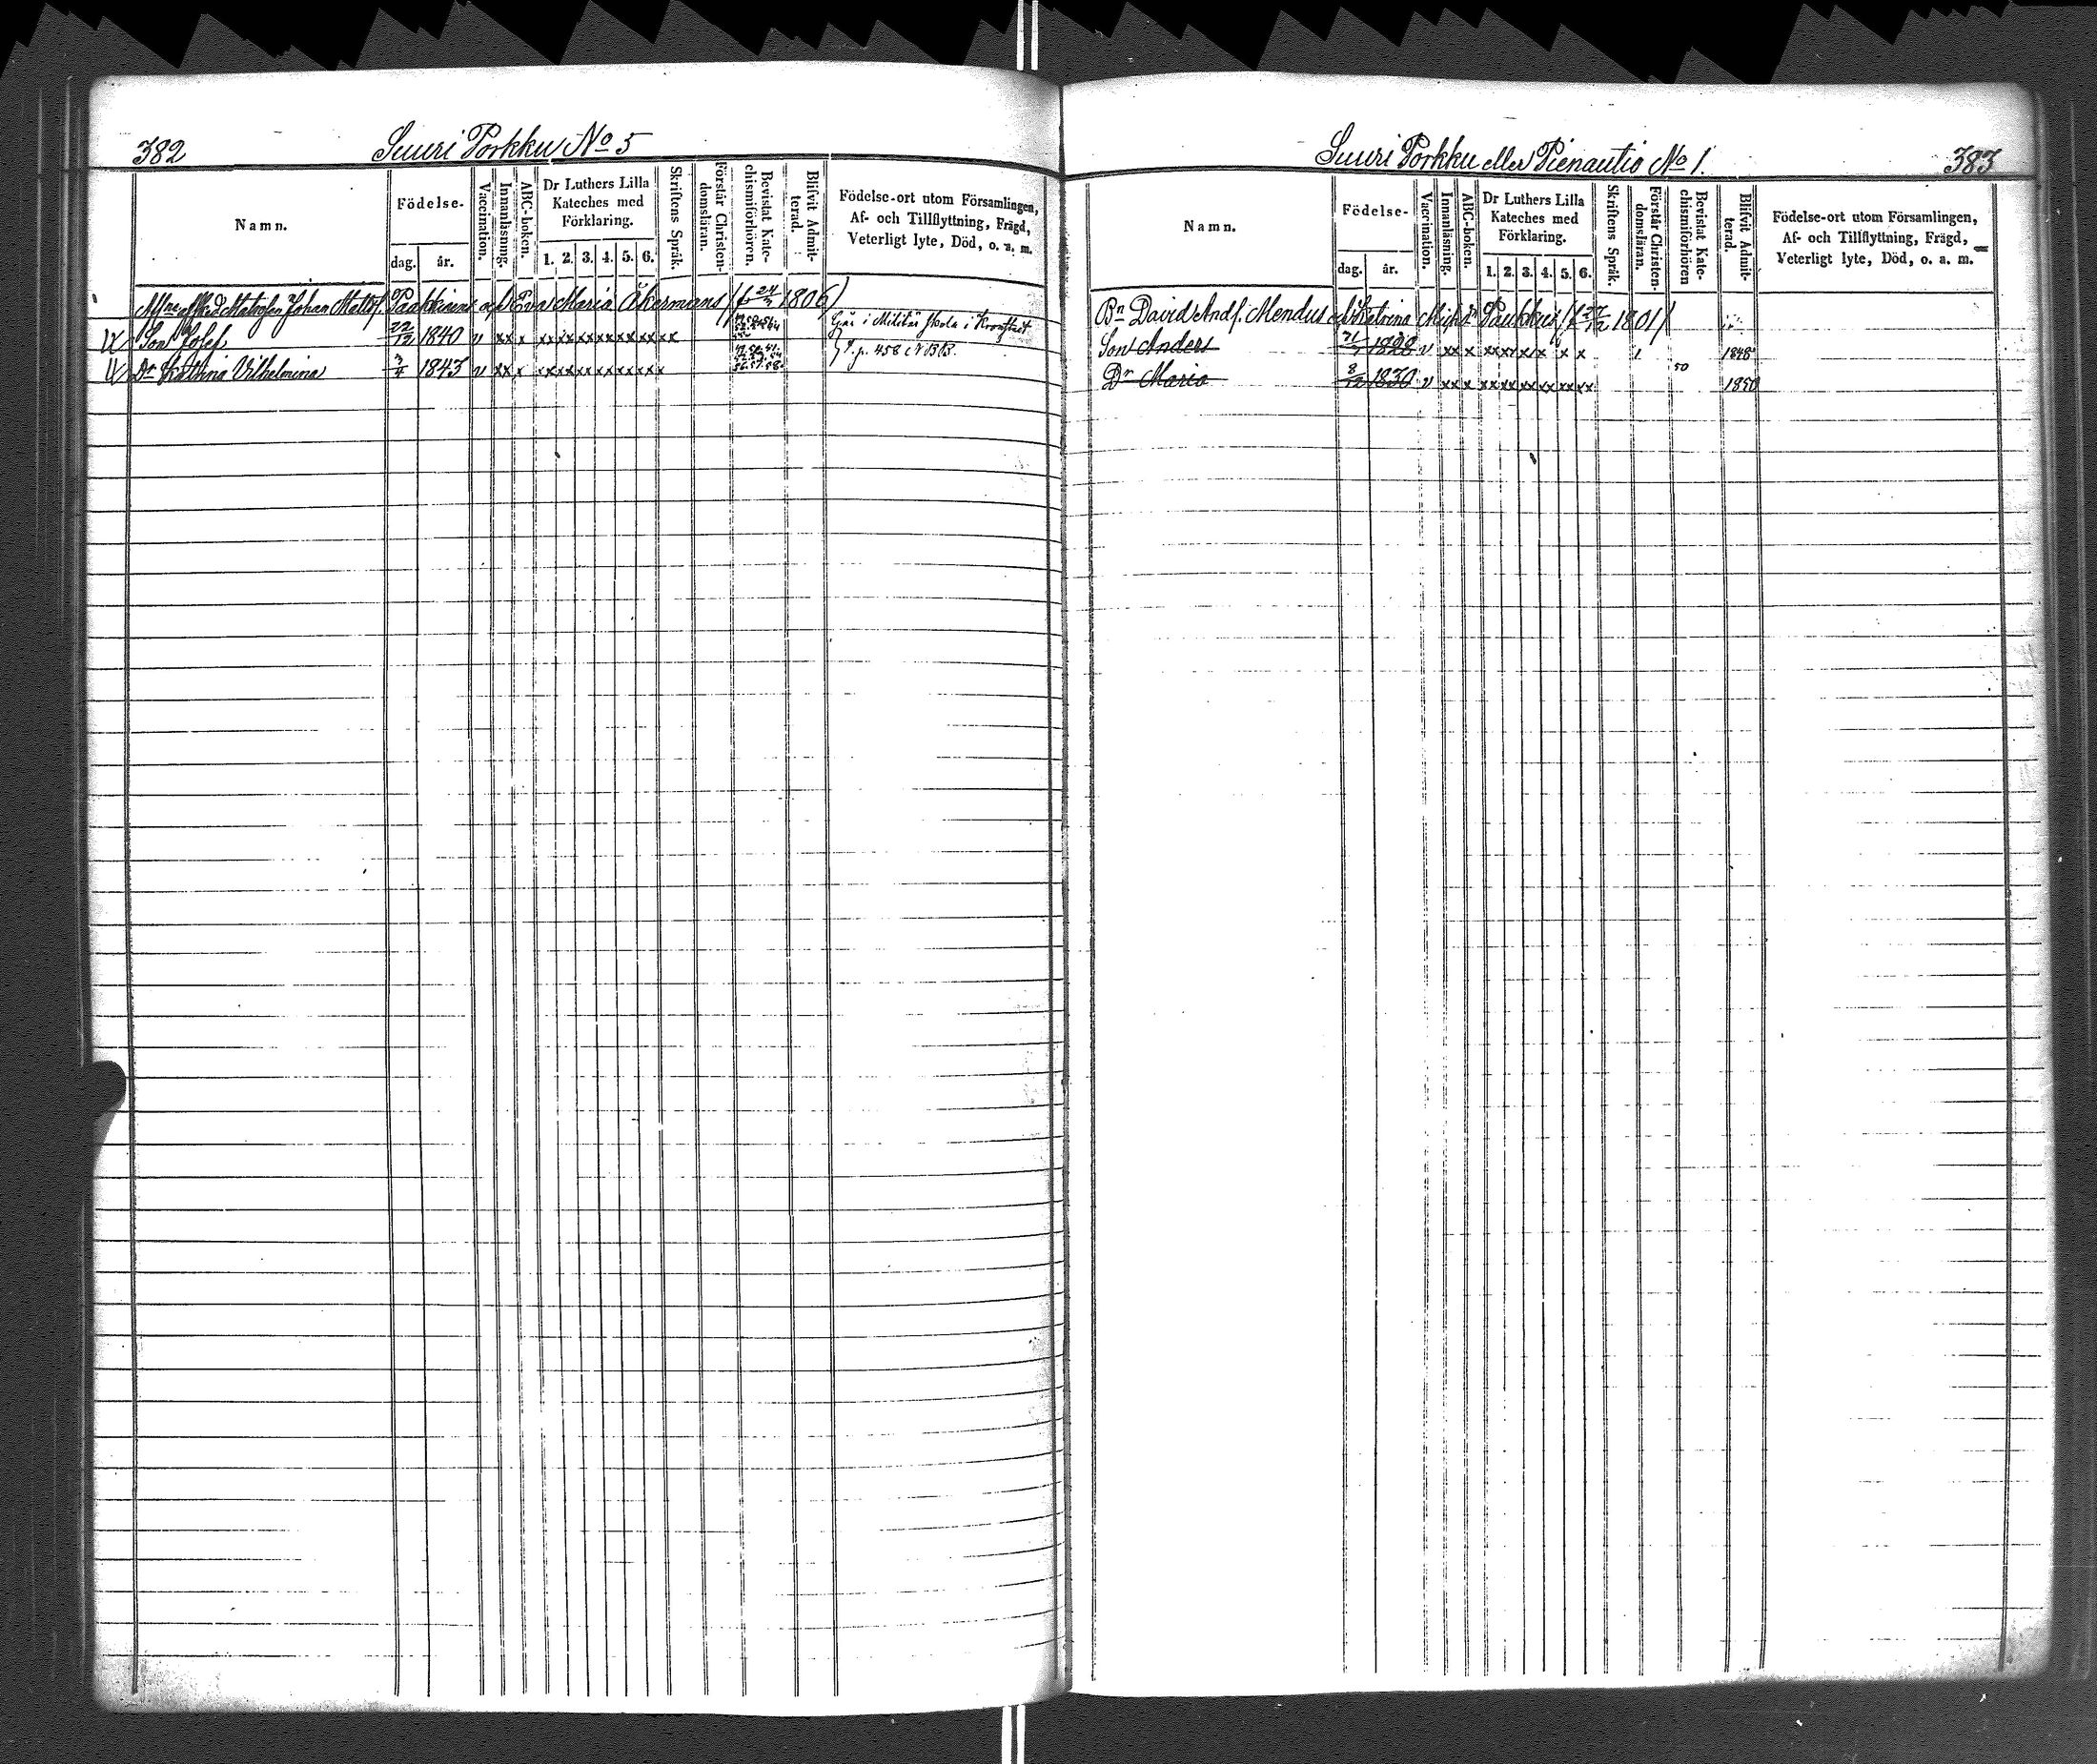 382 Suuri Porkku No 5
Namn. Födelse- dag. år. Vaccination. Innanläsning. ABC-boken. Dr Luthers Lilla Kateches med Förklaring. 1. 2. 3. 4. 5. 6. Skriftens Språk. Förstår Christen-domsläran. Bevistat Kate-chismiförhören. Blifvit Admit-terad. Födelse-ort utom Församlingen, Af- och Tillflyttning, Frägd, Veterligt lyte, Död, o. a. m.
Afsked Matrosen Johan Mattsf. Paakkiains och Eva Maria Åkermans (f. 24/7 1806)
Son Josef 22/12 1840 v xx x xx xx xx xx xx xx xx Går i Militär skola i Kronstad
Dr Kathina Vilhelmina 3/4 1843 v xx x xx xx xx xx xx xx p. 458 N B B.
Suuri Porkku eller Pienautio No 1. 383
Namn. Födelse- dag. år. Vaccination. Innanläsning. ABC-boken. Dr Luthers Lilla Kateches med Förklaring. 1. 2. 3. 4. 5. 6. Skriftens Språk. Förstår Christen-domsläran. Bevistat Kate-chismiförhören Blifvit Admit-terad. Födelse-ort utom Församlingen, Af- och Tillflyttning, Frägd, Veterligt lyte, Död, o. a. m.
Bn David Andf. Mendus Katrina Paukkus (f 1801)
Son Anders 1828 v xx x xx xx x x x x 1 1848
Dr Maria 8/12 1830 v xx x xx xx xx xx xx xx 50 1850